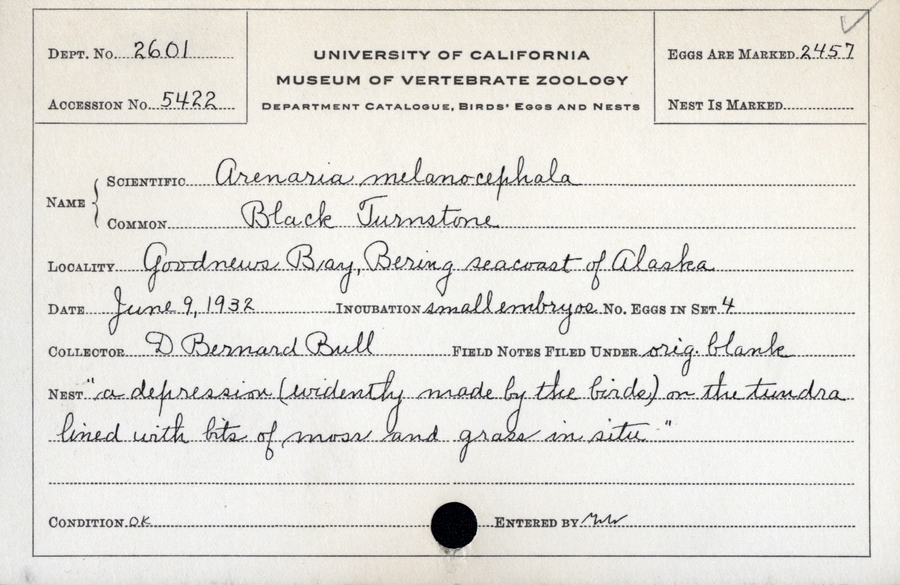 DEPT. No. 2601
ACCESSION No. 5422
UNIVERSITY OF CALIFORNIA
MUSEUM OF VERTEBRATE ZOOLOGY
DEPARTMENT CATALOGUE, BIRDS' EGGS AND NESTS
EGGS ARE MARKED 2457
NEST IS MARKED
NAME
SCIENTIFIC Arenaria melanocephala
COMMON Black Turnstone
LOCALITY Goodnews Bay, Bering seacoast of Alaska
DATE June 9, 1932 INCUBATION small embryos No. EGGS IN SET 4
COLLECTOR D Bernard Bull FIELD NOTES FILED UNDER orig. blank
NEST "a depression (evidently made by the birds) on the tundra
lined with bits of moss and grass in situ"
CONDITION OK ENTERED BY